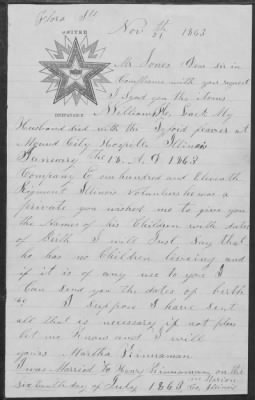 Flora Ills
Nov th 21 1863
UNITED
Mr Jones Dear sir in
Compliance with your request
I send you the items
William H. Lack My
Husband died with the Typoid feaver at
Mound City Hospitle Illinois
January the 13. A. D 1863
Company E one hundred and Eleventh
Regiment Illinois Volunteers he was a
private you wished me to give you
the Names of his Children with dates
of Birth I will Just Say that
he has no Children liveing and
if it is of any use to you I
Can send you the dates of berth
I suppose I have sent
all that is necessary if not pleas
let me Know and I will
yours Martha
I was Married to Henry on the
in Marion
sixteenth day of July 1863 Co, Illinois